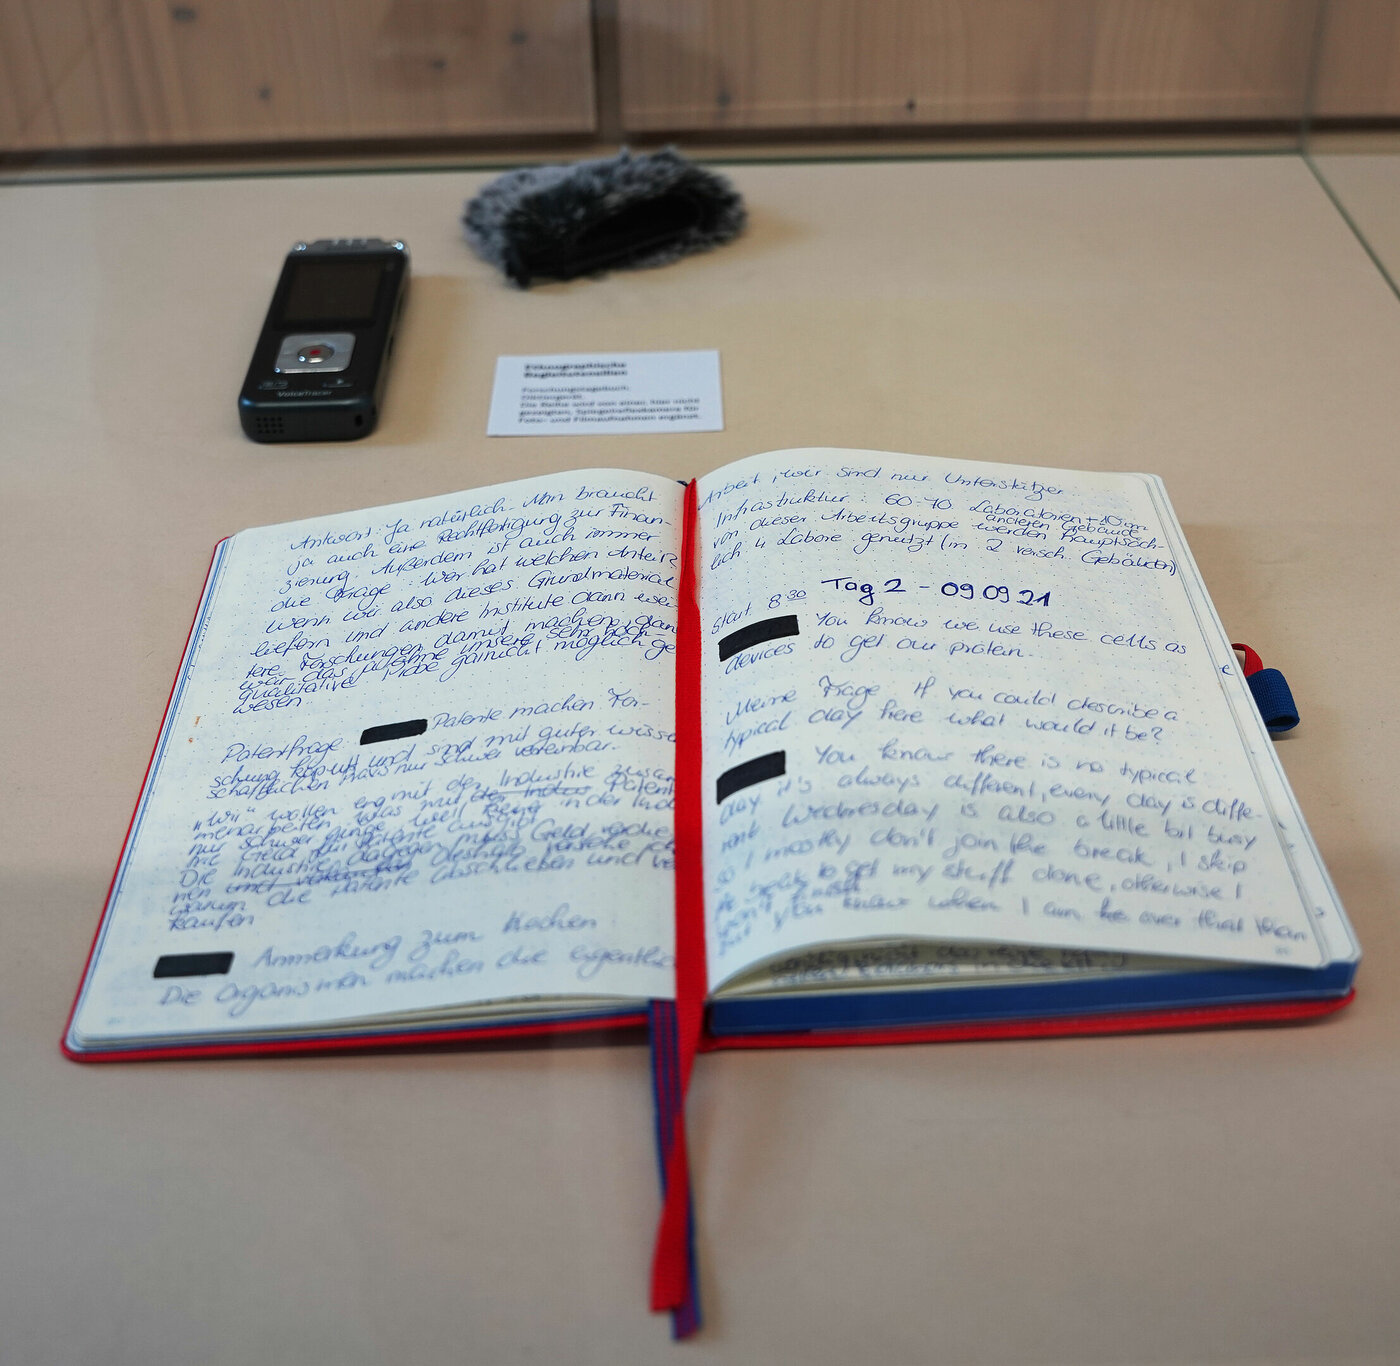 VoiceTracer
Ethnographische
Begleitutensilien
Forschungstagebuch,
Diktiergerät.
Die Reihe wird von einer, hier nicht
gezeigten, Spiegelreflexkamera für
Foto- und Filmaufnahmen ergänzt.
Antwort: Ja natürlich. Man braucht
ja auch eine Rechtfertigung zur Finan-
zierung. Außerdem ist auch immer
die Frage: wer hat welchen Anteil?
Wenn wir also dieses Grundmaterial
liefern und andere Institute dann wei-
tere Forschungen damit machen, dann
wär das ja ohne unsere sehr hoch-
qualitative Probe gar nicht möglich ge
wesen.
Patentfrage Patente machen For-
schung kaputt und sind mit guter wisse
schaftlichen Praxis nur schwer vereinbar.
"Wir" wollen eng mit der Industrie zusam
menarbeiten, was mit Patent
nur schwer ginge weil in der
nie Geld für Patente ausgibt
Die Industrie dagegen muss Geld
nen und deshalb verstehe ich
warum die Patente abschließen und ver
kaufen
Anmerkung zum Kochen
Die Organismen machen die eigentlic
Arbeit, wir sind nur Unterstützer
Infrastruktur: 60-70 Laboratorien + 10 im
anderen Gebäude
von dieser Arbeitsgruppe werden hauptsäch-
lich 4 Labore genutzt (in 2 versch. Gebäuden)
Tag 2 - 09 09 21
Start 8 30
You know we use these cells as
devices to get our protein.
Meine Frage If you could describe a
typical day here what would it be?
You know there is no typical
day it's always different, every day is diffe-
rent Wednesday is also a little bit busy
so I mostly don't join the break, I skip
the break to get my stuff done, otherwise I
won't finish
but you know when I am be over that then